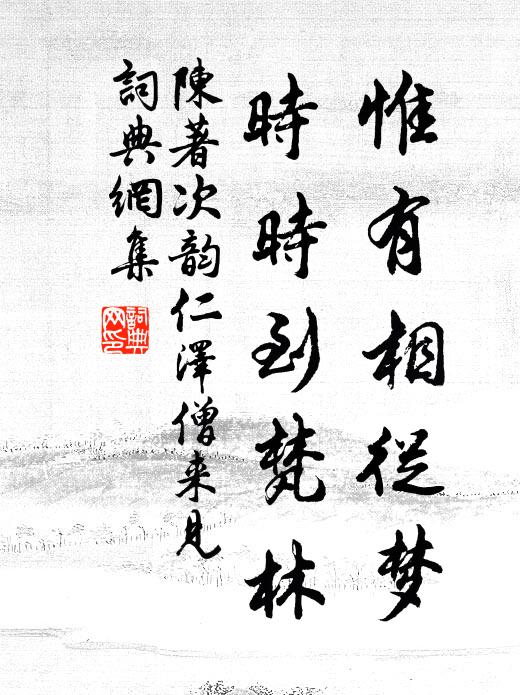 惟有相從梦
時時到梵林
陳著次韵仁澤僧来見
詞典網集
詞典
网印